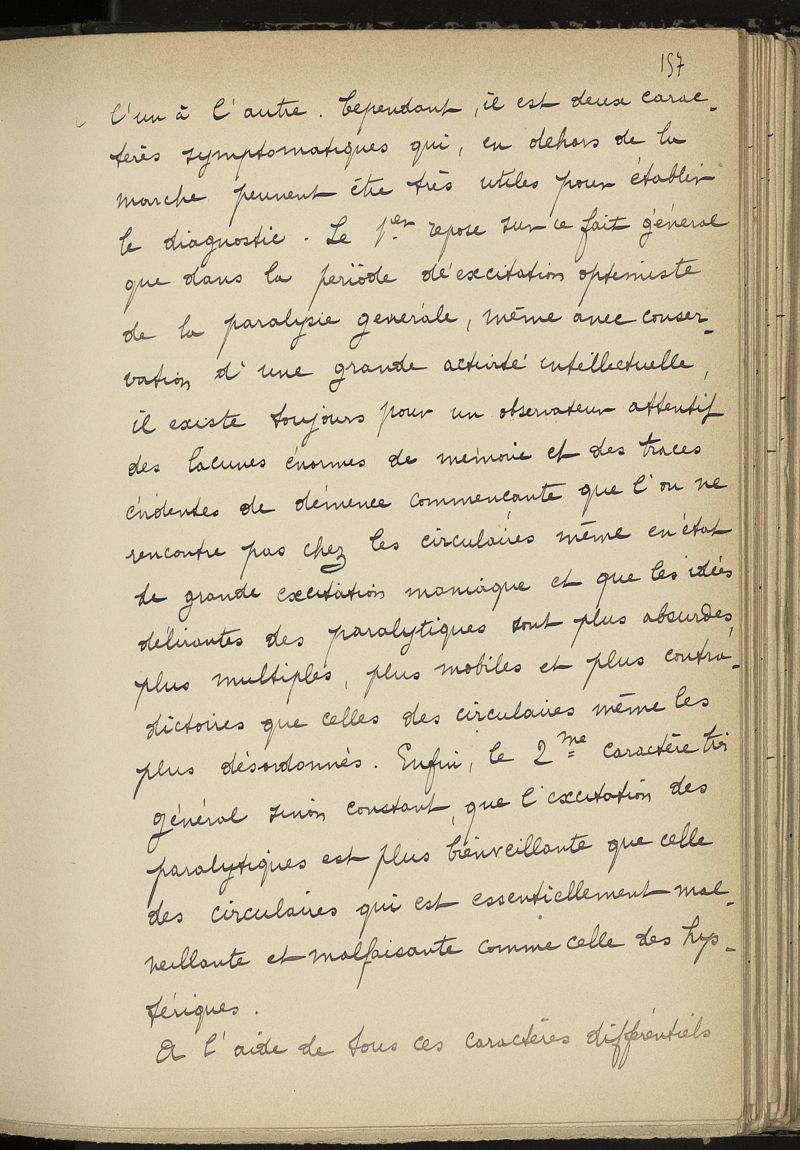 157
l'un à l'autre. Cependant, il est deux carac-
tères symptomatiques qui, en dehors de la
marche peuvent être très utiles pour établir
le diagnostic. Le 1er repose sur ce fait général
que dans la période d'éxcitation optimiste
de la paralysie générale, même avec conser-
vation d'une grande activité intellectuelle,
il existe toujours pour un observateur attentif
des lacunes énormes de mémoire et des traces
évidentes de démence commençante que l'on ne
rencontre pas chez les circulaires même en état
de grande excitation maniaque et que les idées
délirantes des paralytiques sont plus absurdes,
plus multiples, plus mobiles et plus contra-
dictoires que celles des circulaires même les
plus désordonnés. Enfin, le 2me caractère très
général sinon constant, que l'excitation des
paralytiques est plus bienveillante que celle
des circulaires qui est essentiellement mal-
veillante et malfaisante comme celle des hys-
tériques.
A l'aide de tous ces caractères différentiels